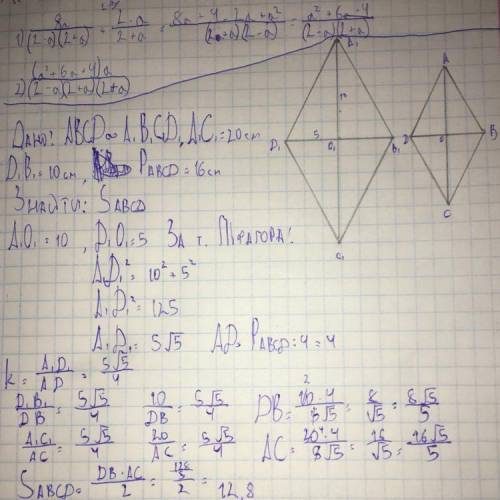 1) 8a/((2-a)(2+a)) + (2-a)/(2+a) = (8a - 4 - 2a + a²)/((2+a)(2-a)) = (a² + 6a - 4)/((2-a)(2+a))
2) (a² + 6a - 4)a/((2-a)(2+a)(2+a))
Дано: ABCD ∞ A₁B₁C₁D₁, A₁C₁ = 20 cm
D₁B₁ = 10 cm, P_ABCD = 16 cm
Знайти: S_ABCD
A₁O₁ = 10, D₁O₁ = 5 За т. Піфагора:
A₁D₁² = 10² + 5²
A₁D₁² = 125
A₁D₁ = 5√5 AD = P_ABCD : 4 = 4
k = A₁D₁/AD = 5√5/4
D₁B₁/DB = 5√5/4 10/DB = 5√5/4 DB = 10·4/5√5 = 8/√5 = 8√5/5
A₁C₁/AC = 5√5/4 20/AC = 5√5/4 AC = 20·4/5√5 = 16/√5 = 16√5/5
S_ABCD = DB·AC/2 = (128/5)/2 = 12,8
A₁
D₁ 5 O₁ B₁
C₁
A
B
C